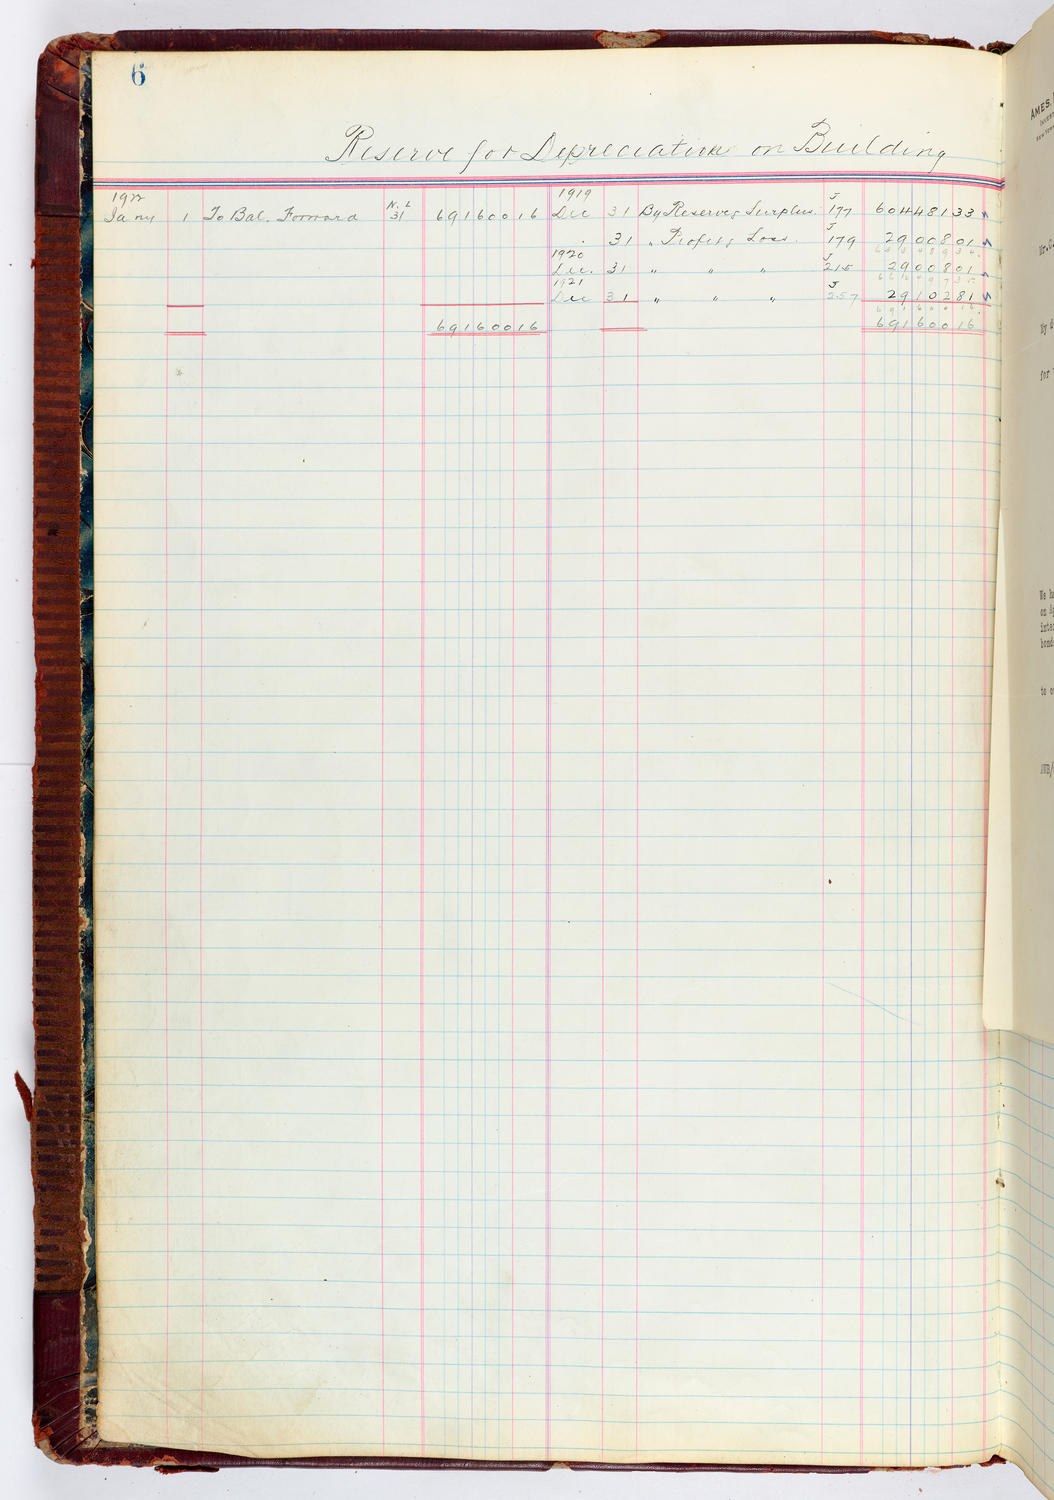 6
Reserve for Depreciation on Building
1922
Jany 1 To Bal. Forward N.L 31 691600 16
691600 16
1919
Dec 31 By Reserve & Surplus. J 177 604481 33
31 " Profit & Loss. J 179 29008 01
633489 34
1920
Dec. 31 " " " J 215 29008 01
662497 35
1921
Dec 31 " " " J 257 29102 81
691600 16
691600 16
AMES,
Mr.
My
for
We ha
on Ap
inte
bond
to o
JWB/